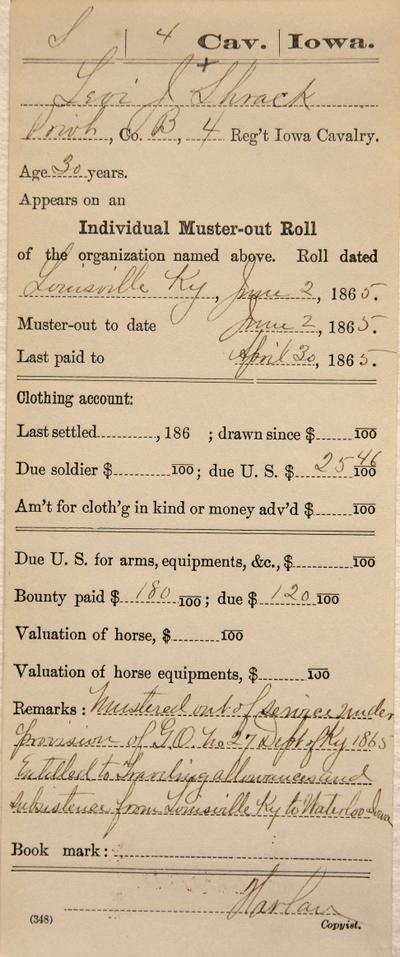 S | 4 Cav. | Iowa.
Levi J Shrack
Priv., Co. B, 4 Reg't Iowa Cavalry.
Age 30 years.
Appears on an
Individual Muster-out Roll
of the organization named above. Roll dated
Louisville Ky, June 2, 1865.
Muster-out to date June 2, 1865.
Last paid to April 30, 1865.
Clothing account:
Last settled, 186 ; drawn since $ 100
Due soldier $ 100; due U. S. $ 25 46/100
Am't for cloth'g in kind or money adv'd $ 100
Due U. S. for arms, equipments, &c., $ 100
Bounty paid $ 180 100; due $ 120 100
Valuation of horse, $ 100
Valuation of horse equipments, $ 100
Remarks: Mustered out of service under
provision of G.O. No 27 Dept of Ky 1865
Entitled to traveling allowances and
subsistence from Louisville Ky to Waterloo Iowa
Book mark:
Harlan
(348) Copyist.